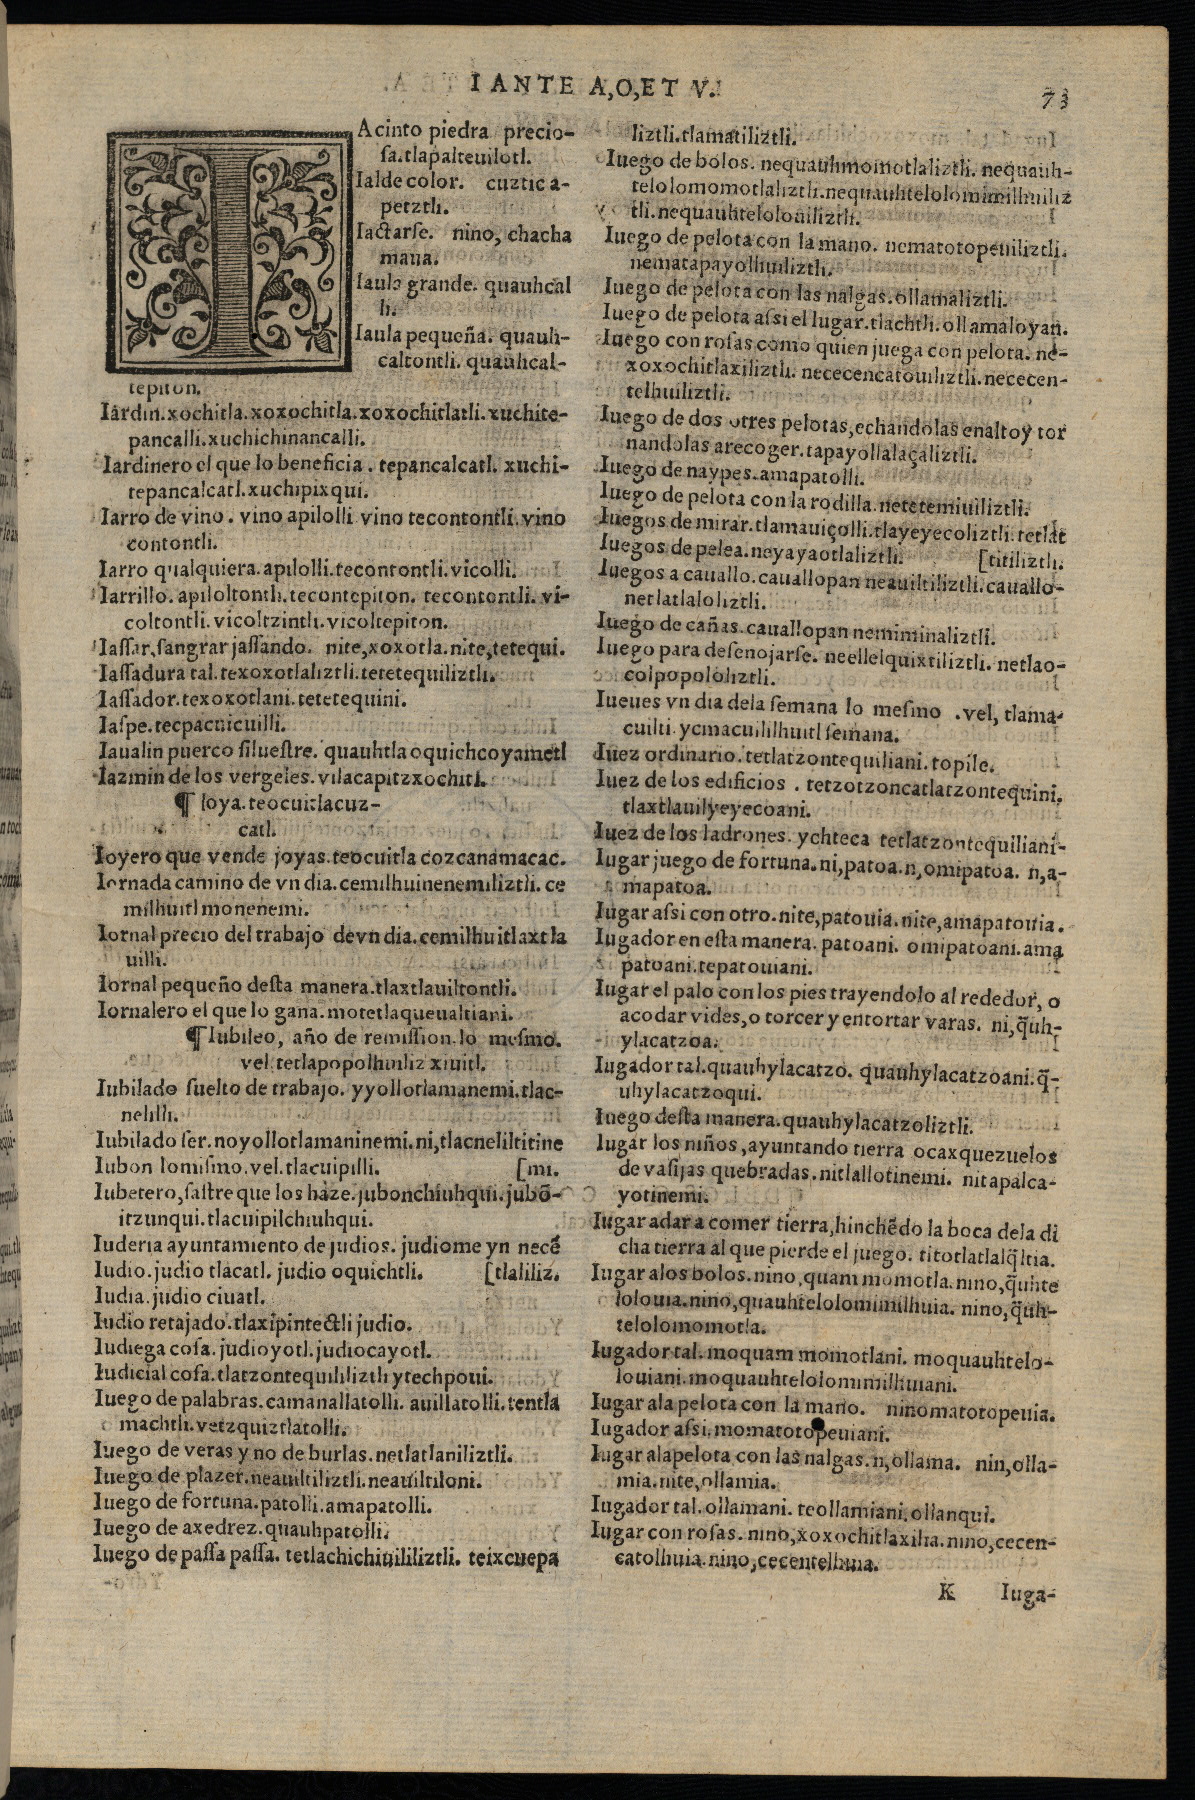 I ANTE A,O,ET V.
73
IAcinto piedra precio-
sa.tlapalteuilotl.
Ialde color. cuztic a-
petztli.
Iactarse. nino, chacha
maua.
Iaula grande. quauhcal
li.
Iaula pequeña. quauh-
caltontli. quauhcal-
tepiton.
Iardin.xochitla.xoxochitla.xoxochitlatli.xuchite-
pancalli.xuchichinancalli.
Iardinero el que lo beneficia. tepancalcatl. xuchi-
tepancalcatl.xuchipixqui.
Iarro de vino. vino apilolli vino tecontontli.vino
contontli.
Iarro qualquiera.apilolli.tecontontli.vicolli.
Iarrillo. apiloltontli.tecontepiton. tecontontli.vi-
coltontli.vicoltzintli.vicoltepiton.
Iassar, sangrar jassando. nite,xoxotla.nite,tetequi.
Iassadura tal.texoxotlaliztli.tetetequiliztli.
Iassador.texoxotlani.tetetequini.
Iaspe.tecpacuicuilli.
Iaualin puerco siluestre. quauhtla oquichcoyametl
Iazmin de los vergeles.vilacapitzxochitl.
¶ Ioya.teocuitlacuz-
catl.
Ioyero que vende joyas.teocuitla cozcanamacac.
Iornada camino de vn dia.cemilhuinenemiliztli.ce
milhuitl monenemi.
Iornal precio del trabajo de vn dia.cemilhuitlaxtla
uilli.
Iornal pequeño desta manera.tlaxtlauiltontli.
Iornalero el que lo gana.motetlaqueualtiani.
¶ Iubileo, año de remission.lo mesmo.
vel.tetlapopolhuiliz xiuitl.
Iubilado suelto de trabajo. yyollotlamanemi.tlac-
nelilli.
Iubilado ser.noyollotlamaninemi.ni,tlacneliltitine
Iubon lo mismo.vel.tlacuipilli. [mi.
Iubetero, sastre que los haze.jubonchiuhqui.jubõ-
itzunqui.tlacuipilchiuhqui.
Iuderia ayuntamiento de judios. judiome yn necẽ
Iudio.judio tlacatl. judio oquichtli. [tlaliliz.
Iudia.judio ciuatl.
Iudio retajado.tlaxipintectli judio.
Iudiega cosa.judioyotl.judiocayotl.
Iudicial cosa.tlatzontequililiztli ytechpoui.
Iuego de palabras.camanallatolli. auillatolli.tentla
machtli.vetzquiztlatolli.
Iuego de veras y no de burlas.netlatlaniliztli.
Iuego de plazer.neauiltiliztli.neauiltiloni.
Iuego de fortuna.patolli.amapatolli.
Iuego de axedrez.quauhpatolli.
Iuego de passa passa. tetlachichiuililiztli. teixcuepa
liztli.tlamatiliztli.
Iuego de bolos. nequauhmomotlaliztli. nequauh-
telolomomotlaliztli.nequauhtelolomimilhuiliz
tli.nequauhtelolouiliztli.
Iuego de pelota con la mano. nematotopeuiliztli.
nematapayolhuiliztli.
Iuego de pelota con las nalgas.ollamaliztli.
Iuego de pelota assi el lugar.tlachtli.ollamaloyan.
Iuego con rosas como quien juega con pelota. ne-
xoxochitlaxiliztli. nececencatouiliztli.nececen-
telhuiliztli.
Iuego de dos otres pelotas,echandolas enalto y tor
nandolas arecoger.tapayollalaçaliztli.
Iuego de naypes.amapatolli.
Iuego de pelota con la rodilla.netetemiuiliztli.
Iuegos de mirar.tlamauiçolli.tlayeyecoliztli.tetlat
Iuegos de pelea.neyayaotlaliztli. [titiliztli.
Iuegos a cauallo.cauallopan neauiltiliztli.cauallo-
netlatlaloliztli.
Iuego de cañas.cauallopan nemiminaliztli.
Iuego para desenojarse. neellelquixtiliztli. netlao-
colpopololiztli.
Iueues vn dia dela semana lo mesmo .vel, tlama-
cuilti.ycmacuililhuitl semana.
Iuez ordinario.tetlatzontequiliani.topile.
Iuez de los edificios . tetzotzoncatlatzontequini.
tlaxtlauilyeyecoani.
Iuez de los ladrones. ychteca tetlatzontequiliani-
Iugar juego de fortuna.ni,patoa.n,omipatoa. n,a-
mapatoa.
Iugar assi con otro.nite,patouia.nite,amapatouia.
Iugador en esta manera.patoani. omipatoani.ama
patoani.tepatouiani.
Iugar el palo con los pies trayendolo al rededor, o
acodar vides,o torcer y entortar varas. ni,q̃uh-
ylacatzoa.
Iugador tal.quauhylacatzo. quauhylacatzoani.q̃-
uhylacatzoqui.
Iuego desta manera.quauhylacatzoliztli.
Iugar los niños,ayuntando tierra ocaxquezuelos
de vasijas quebradas.nitlallotinemi. nitapalca-
yotinemi.
Iugar adar a comer tierra,hinchẽdo la boca dela di
cha tierra al que pierde el juego. titotlatlalq̃ltia.
Iugar alos bolos.nino,quam momotla.nino,q̃uhte
lolouia.nino,quauhtelolomimilhuia. nino,q̃uh-
telolomomotla.
Iugador tal. moquam momotlani. moquauhtelo-
louiani.moquauhtelolomimilhuiani.
Iugar ala pelota con la mano. ninomatotopeuia.
Iugador assi.momatotopeuiani.
Iugar alapelota con las nalgas.n,ollama. nin,olla-
mia.nite,ollamia.
Iugador tal.ollamani. teollamiani.ollanqui.
Iugar con rosas. nino,xoxochitlaxilia.nino,cecen-
catolhuia.nino,cecentelhuia.
K Iuga-